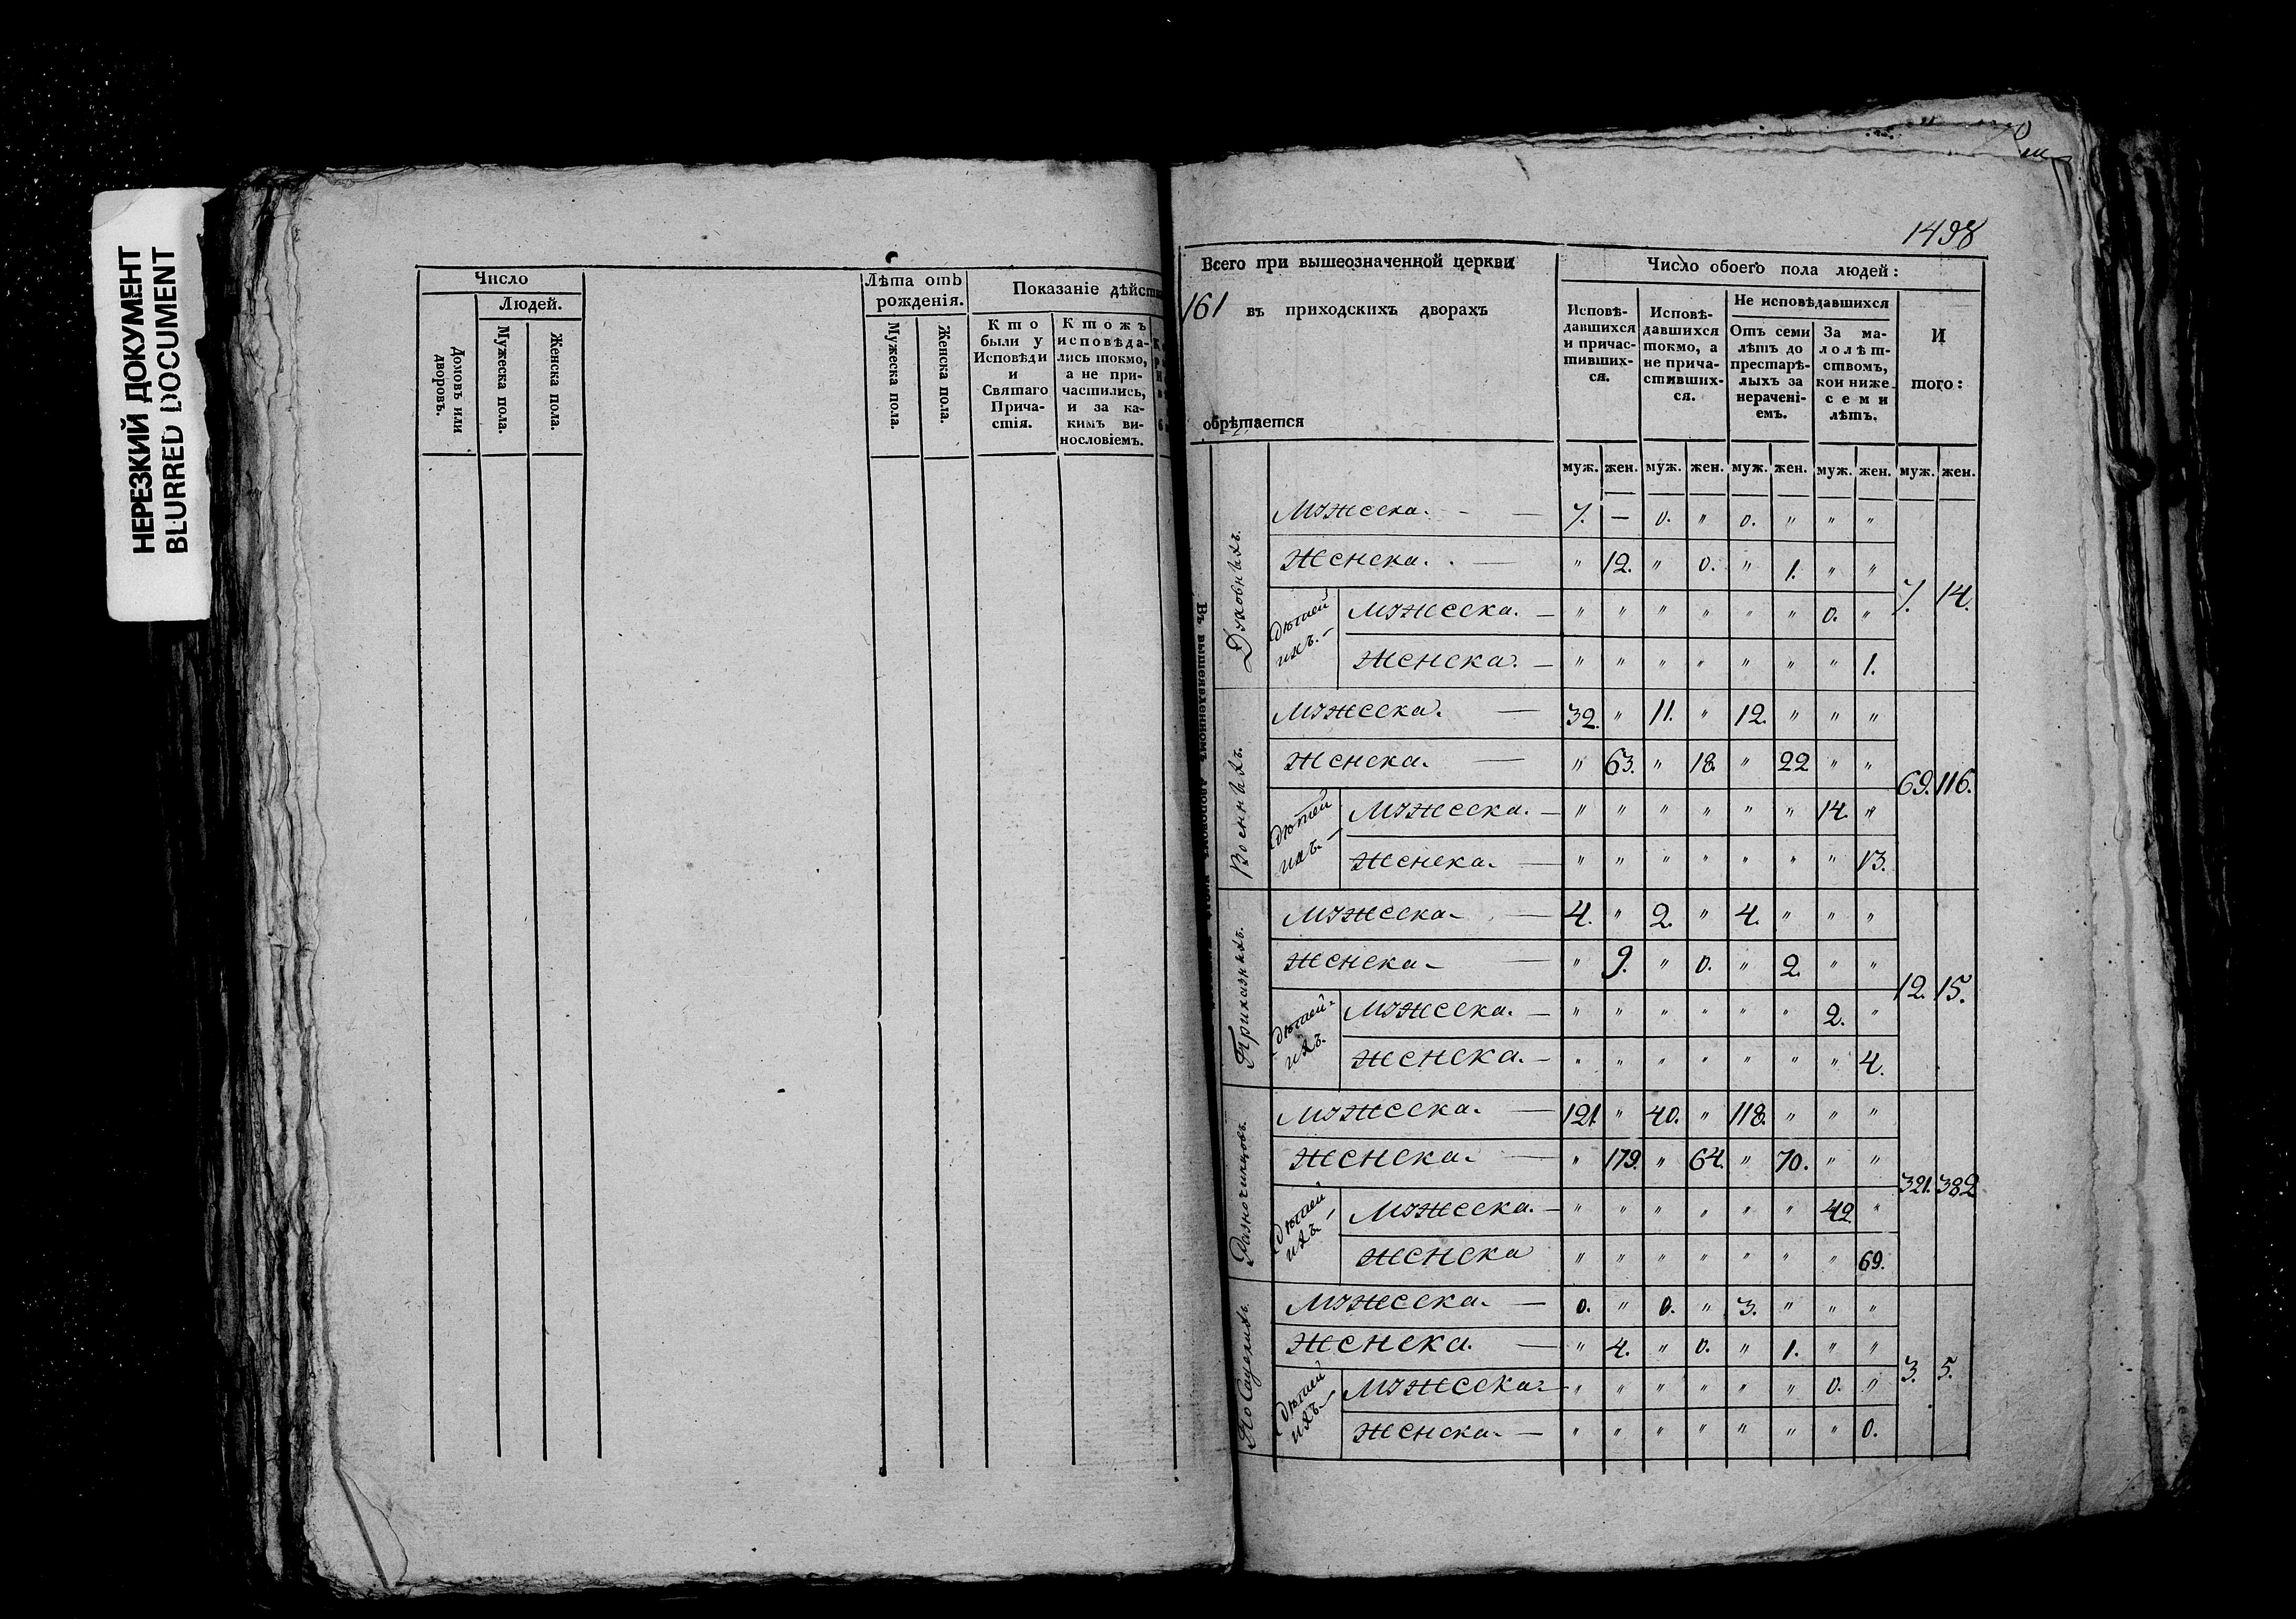 НЕРЕЗКИЙ ДОКУМЕНТ
BLURRED DOCUMENT
Число
Людей.
Домовъ или дворовъ.
Мужеска пола.
Женска пола.
Лѣта отъ рожденія.
Мужеска пола.
Женска пола.
Показаніе дѣйст
Кто были у Исповѣди и Святаго Причастія.
Ктожъ исповѣдались токмо, а не причастились, и за какимъ винословіемъ.
1498
Всего при вышеозначенной церкви
161 въ приходскихъ дворахъ
обрѣтается
Число обоего пола людей:
Исповѣдавшихся и причастившихся.
Исповѣдавшихся токмо, а не причастившихся.
Не исповѣдавшихся
Отъ семи лѣтъ до престарѣлыхъ за нераченіемъ.
За малолѣтствомъ, кои ниже семи лѣтъ.
И того:
муж. жен. муж. жен. муж. жен. муж. жен. муж. жен.
Въ вышеявленномъ дворовомъ числѣ
Духовныхъ.
Мужеска. — 7. — 0. " 0. " " "
Женска. — " 12. " 0. " 1. " "
7. 14.
Дѣтей ихъ. —
Мужеска. — " " " " " " 0. "
Женска. — " " " " " " " 1.
Военныхъ.
Мужеска. — 32. " 11. " 12. " " "
Женска. — " 63. " 18. " 22 " "
69. 116.
Дѣтей ихъ. —
Мужеска. — " " " " " " 14. "
Женска. — " " " " " " " 13.
Приказныхъ.
Мужеска. — 4. " 2. " 4. " " "
Женска. — " 9. " 0. " 2. " "
12. 15.
Дѣтей ихъ.
Мужеска. — " " " " " " 2. "
Женска. — " " " " " " " 4.
Разночинцовъ.
Мужеска. — 121. " 40. " 118. " " "
Женска. — " 179. " 64. " 70. " "
321. 382
Дѣтей ихъ. —
Мужеска. — " " " " " " 42 "
Женска " " " " " " " 69.
Посацкихъ
Мужеска. — 0. " 0. " 3. " " "
Женска. — " 4. " 0. " 1. " "
3. 5.
Дѣтей ихъ. —
Мужеска. — " " " " " " 0. "
Женска. — " " " " " " " 0.